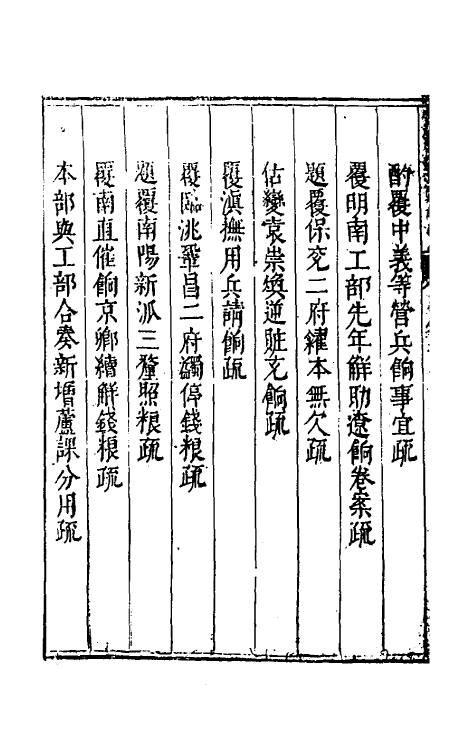 酌覆中義等營兵餉事宜疏
覆明南工部先年解助遼餉卷案疏
題覆保兗二府糴本無欠疏
估變袁崇煥逆賍充餉疏
覆滇撫用兵請餉疏
覆臨洮鞏昌二府蠲停錢粮疏
題覆南陽新派三釐照粮疏
覆南直催餉京卿續解錢粮疏
本部與工部合奏新增蘆課分用疏